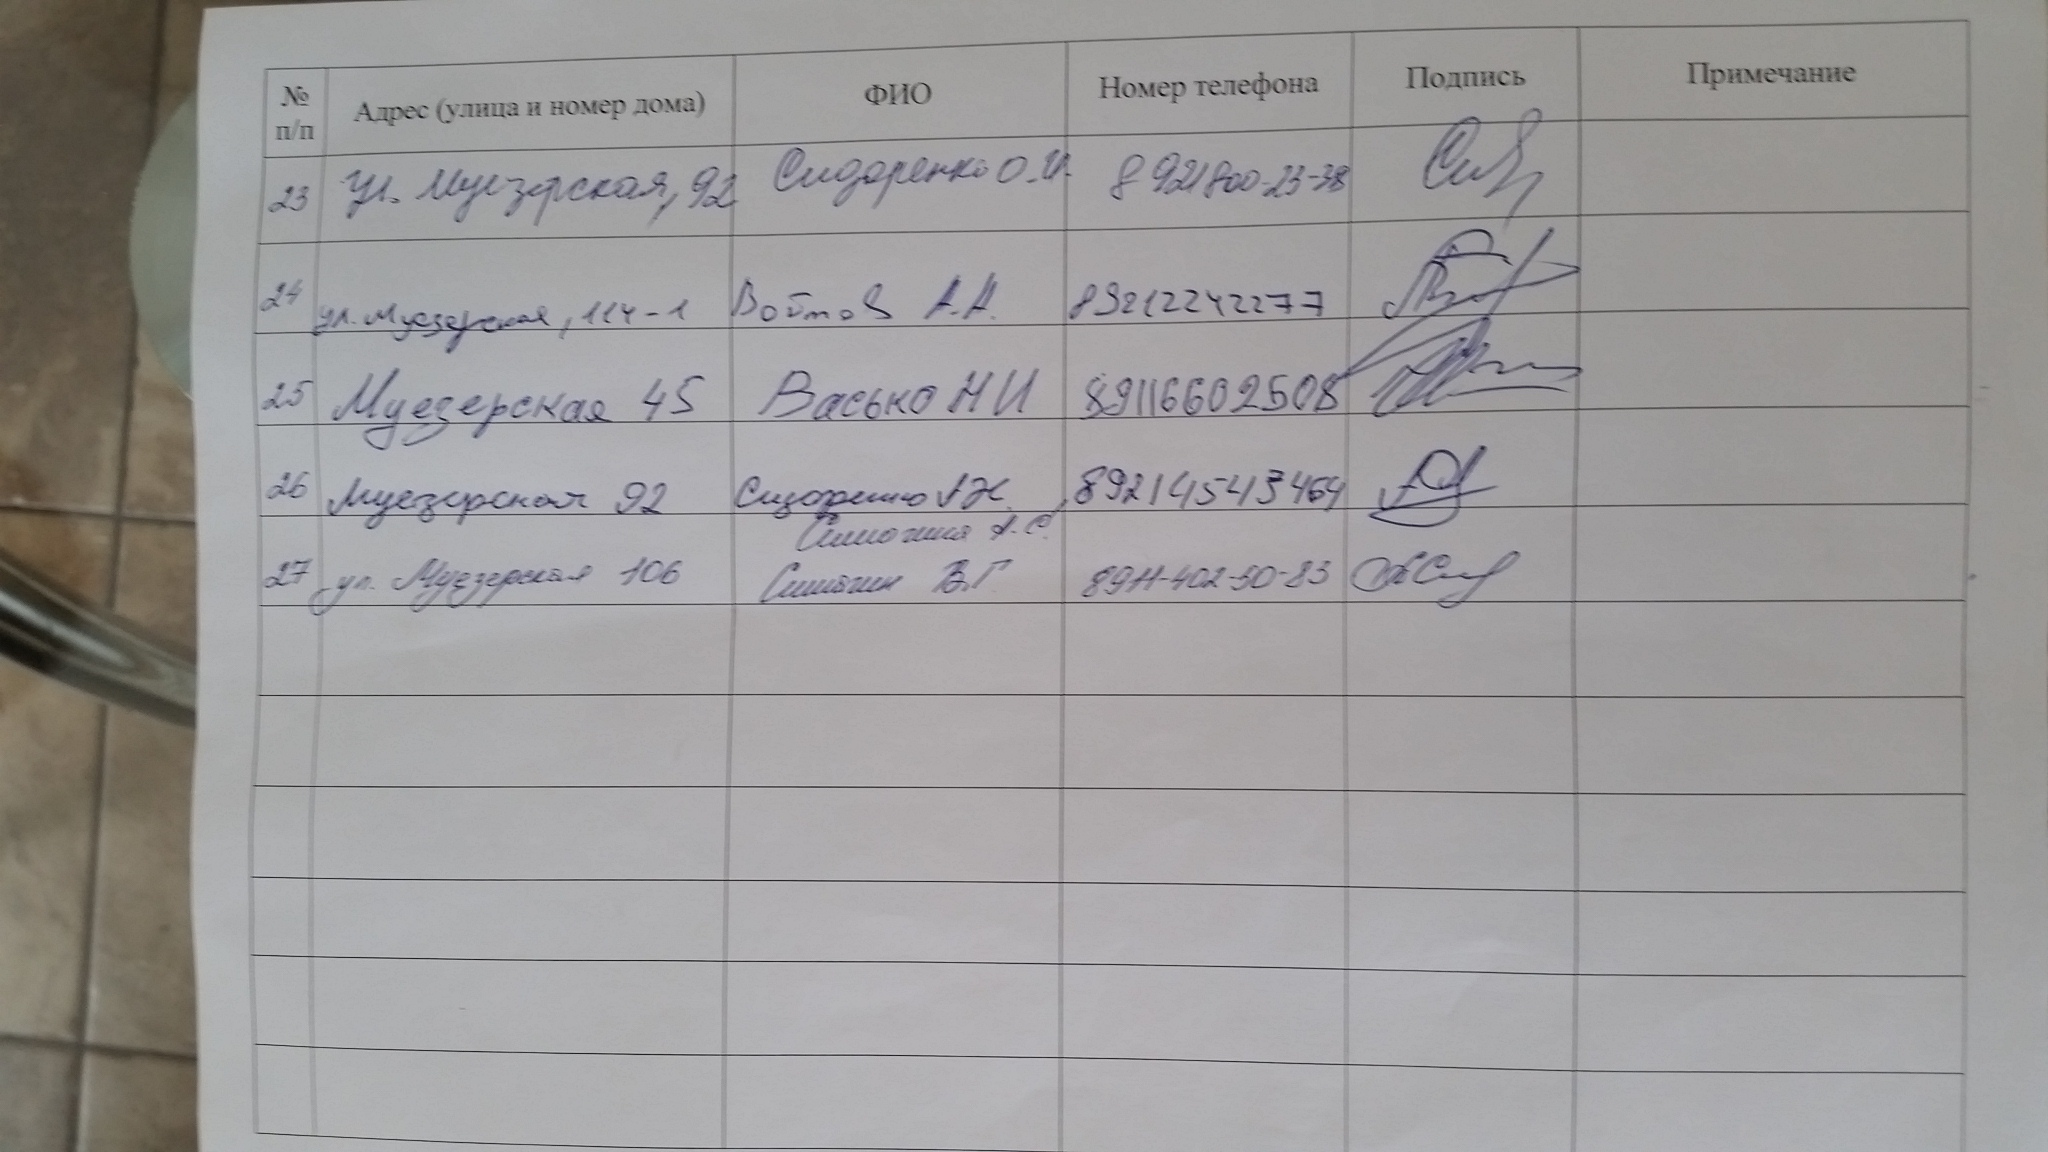 № п/п Адрес (улица и номер дома) ФИО Номер телефона Подпись Примечание
23 ул. Муезерская, 92 Сидоренко О.И. 8 921 800-23-38
24 ул. Муезерская, 114-1 Войтов А.Н. 89212242277
25 Муезерская 45 Васько Н И 89116602508
26 Муезерская 92 Сидоренко 
27 ул. Муезерская 106 В.Г 8911-402-50-83